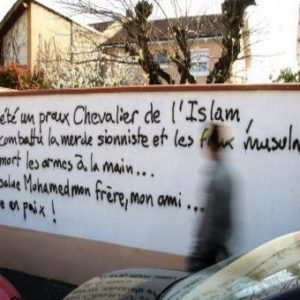 été un preux Chevalier de l'Islam,
combattu la merde sioniste et les faux musulm
mort les armes à la main...
salue Mohamed mon frère, mon ami...
e en paix!